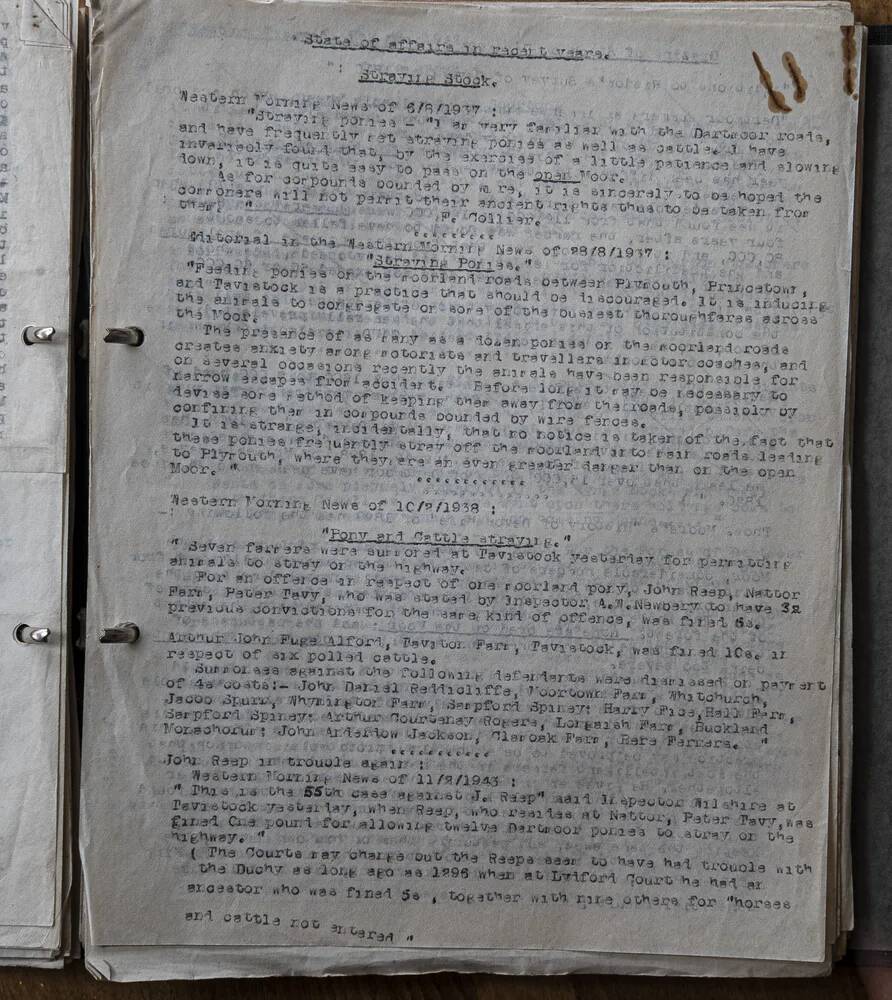 State of affairs in recent years.
Straying Stock.
Western Morning News of 6/8/1937 :
"Straying ponies - "I am very familiar with the Dartmoor roads,
and have frequently met straying ponies as well as cattle. I have
invariably found that, by the exercise of a little patience and slowing
down, it is quite easy to pass on the open Moor.
As for compounds bounded by wire, it is sincerely to be hoped the
commoners will not permit their ancient rights thus to be taken from
them. " F. Collier.
Editorial in the Western Morning News of 28/8/1937 :
"Straying Ponies."
"Feeding ponies on the moorland roads between Plymouth, Princetown,
and Tavistock is a practice that should be discouraged. It is inducing
the animals to congregate on some of the busiest thoroughfares across
the Moor.
The presence of as many as a dozen ponies on the moorland roads
creates anxiety among motorists and travellers in motor coaches, and
on several occasions recently the animals have been responsible for
narrow escapes from accident. Before long it may be necessary to
devise some method of keeping them away from the roads, possibly by
confining them in compounds bounded by wire fences.
It is strange, incidentally, that no notice is taken of the fact that
these ponies frequently stray off the moorland into main roads leading
to Plymouth, where they are an even greater danger than on the open
Moor. "
Western Morning News of 10/2/1938 :
"Pony and Cattle straying."
" Seven farmers were summoned at Tavistock yesterday for permitting
animals to stray on the highway.
For an offence in respect of one moorland pony, John Reep, Nattor
Farm, Peter Tavy, who was stated by Inspector A.W.Newbery to have 32
previous convictions for the same kind of offence, was fined 5s.
Arthur John Fuge Alford, Taviton Farm, Tavistock, was fined 10s. in
respect of six polled cattle.
Summonses against the following defendants were dismissed on payment
of 4s costs:- John Daniel Reddicliffe, Moortown Farm, Whitchurch,
Jacob Spurr, Whymington Farm, Sampford Spiney: Harry Fice, Hall Farm,
Sampford Spiney: Arthur Courtenay Rogers, Longash Farm, Buckland
Monachorum: John Anderdow Jackson, Clamoak Farm, Bere Ferrers. "
John Reep in trouble again :
Western Morning News of 11/2/1943 :
" This is the 55th case against J. Reep" said Inspector Wilshire at
Tavistock yesterday, when Reep, who resides at Nattor, Peter Tavy, was
fined One pound for allowing twelve Dartmoor ponies to stray on the
highway. "
( The Courts may change but the Reeps seem to have had trouble with
the Duchy as long ago as 1296 when at Lydford Court he had an
ancestor who was fined 5s , together with nine others for "horses
and cattle not entered "